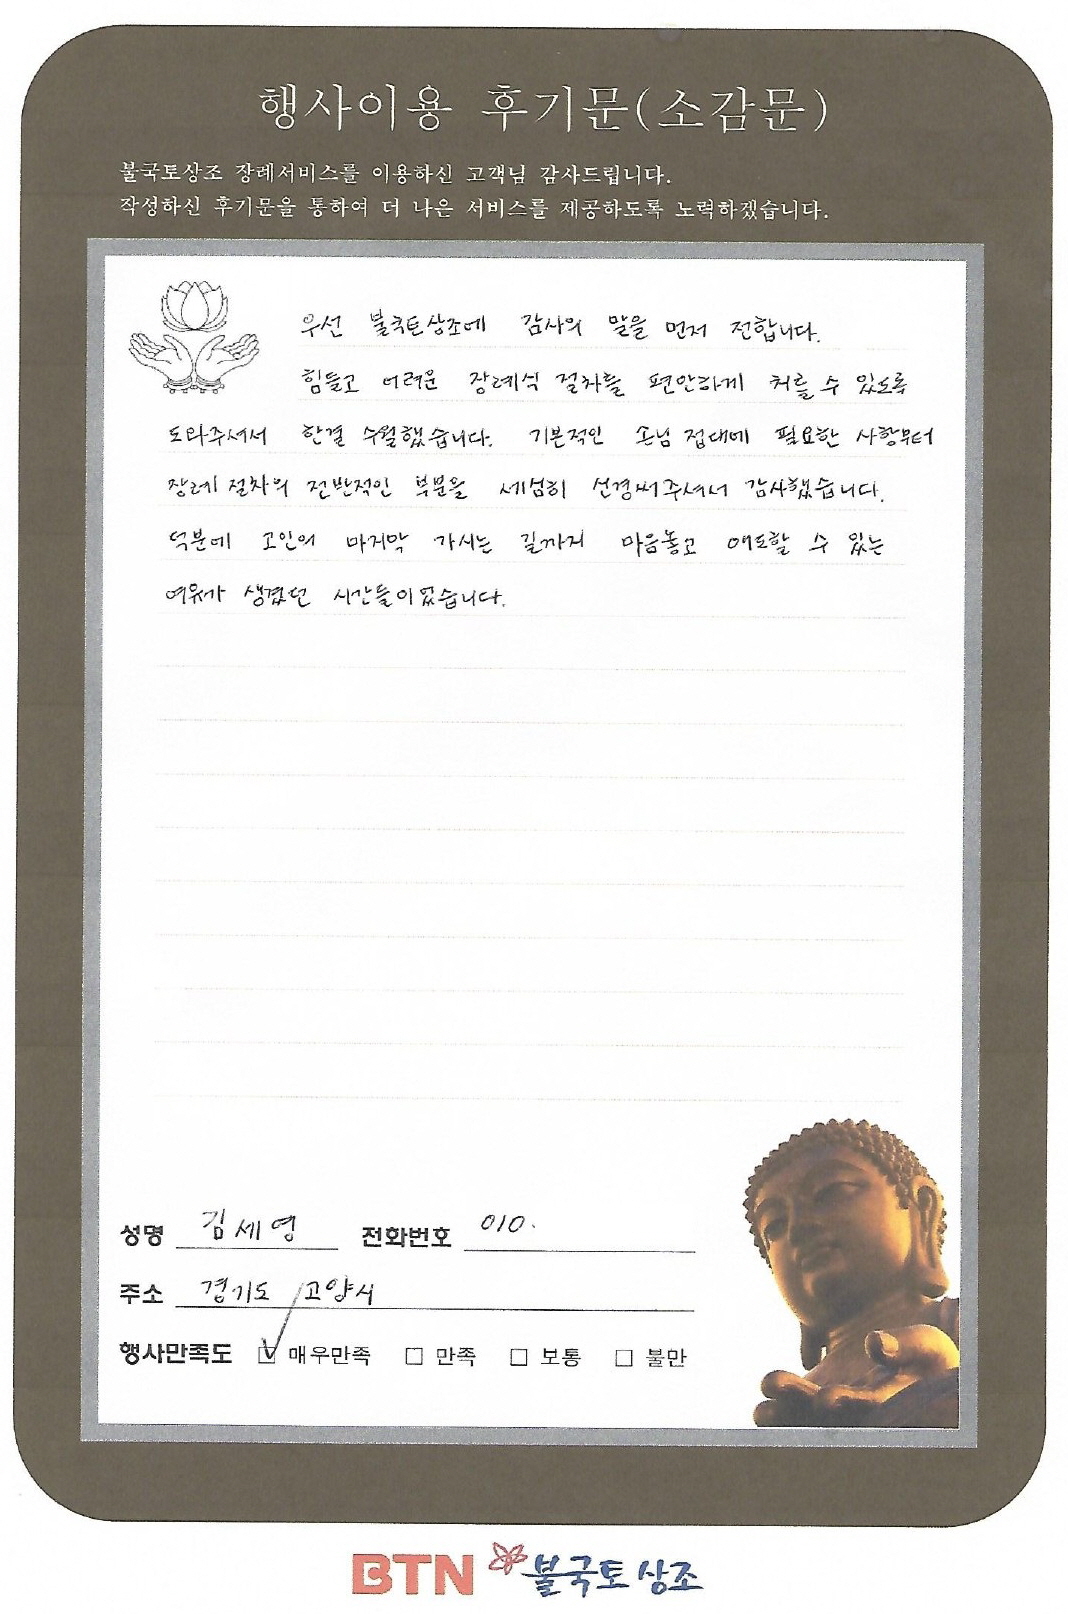 행사이용 후기문(소감문)
불국토상조 장례서비스를 이용하신 고객님 감사드립니다.
작성하신 후기문을 통하여 더 나은 서비스를 제공하도록 노력하겠습니다.
우선 불국토상조에 감사의 말을 먼저 전합니다.
힘들고 어려운 장례식 절차를 편안하게 치를 수 있도록
도와주셔서 한결 수월했습니다. 기본적인 손님 접대에 필요한 사항부터
장례 절차의 전반적인 부분을 세심히 신경써주셔서 감사했습니다.
덕분에 고인의 마지막 가시는 길까지 마음놓고 애도할 수 있는
여유가 생겼던 시간들이었습니다.
성명 김세영 전화번호 010.
주소 경기도 고양시
행사만족도 ☑ 매우만족 □ 만족 □ 보통 □ 불만
BTN 불국토상조